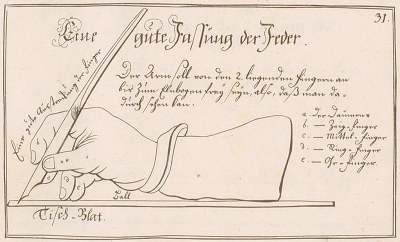 31.
Eine gute Fassung der Feder.
Der Arm soll von den 2. liegenden Fingern an
bis zum Elnbogen frey seyn, also, daß man da-
durch sehen kan.
Eine gute Ausstreckung der Finger
a. der Daumen
b. — Zeig-Finger
c. — Mittel-Finger
d. — Ring-Finger
e. — Or-Finger
Ball
Tisch-Blat.